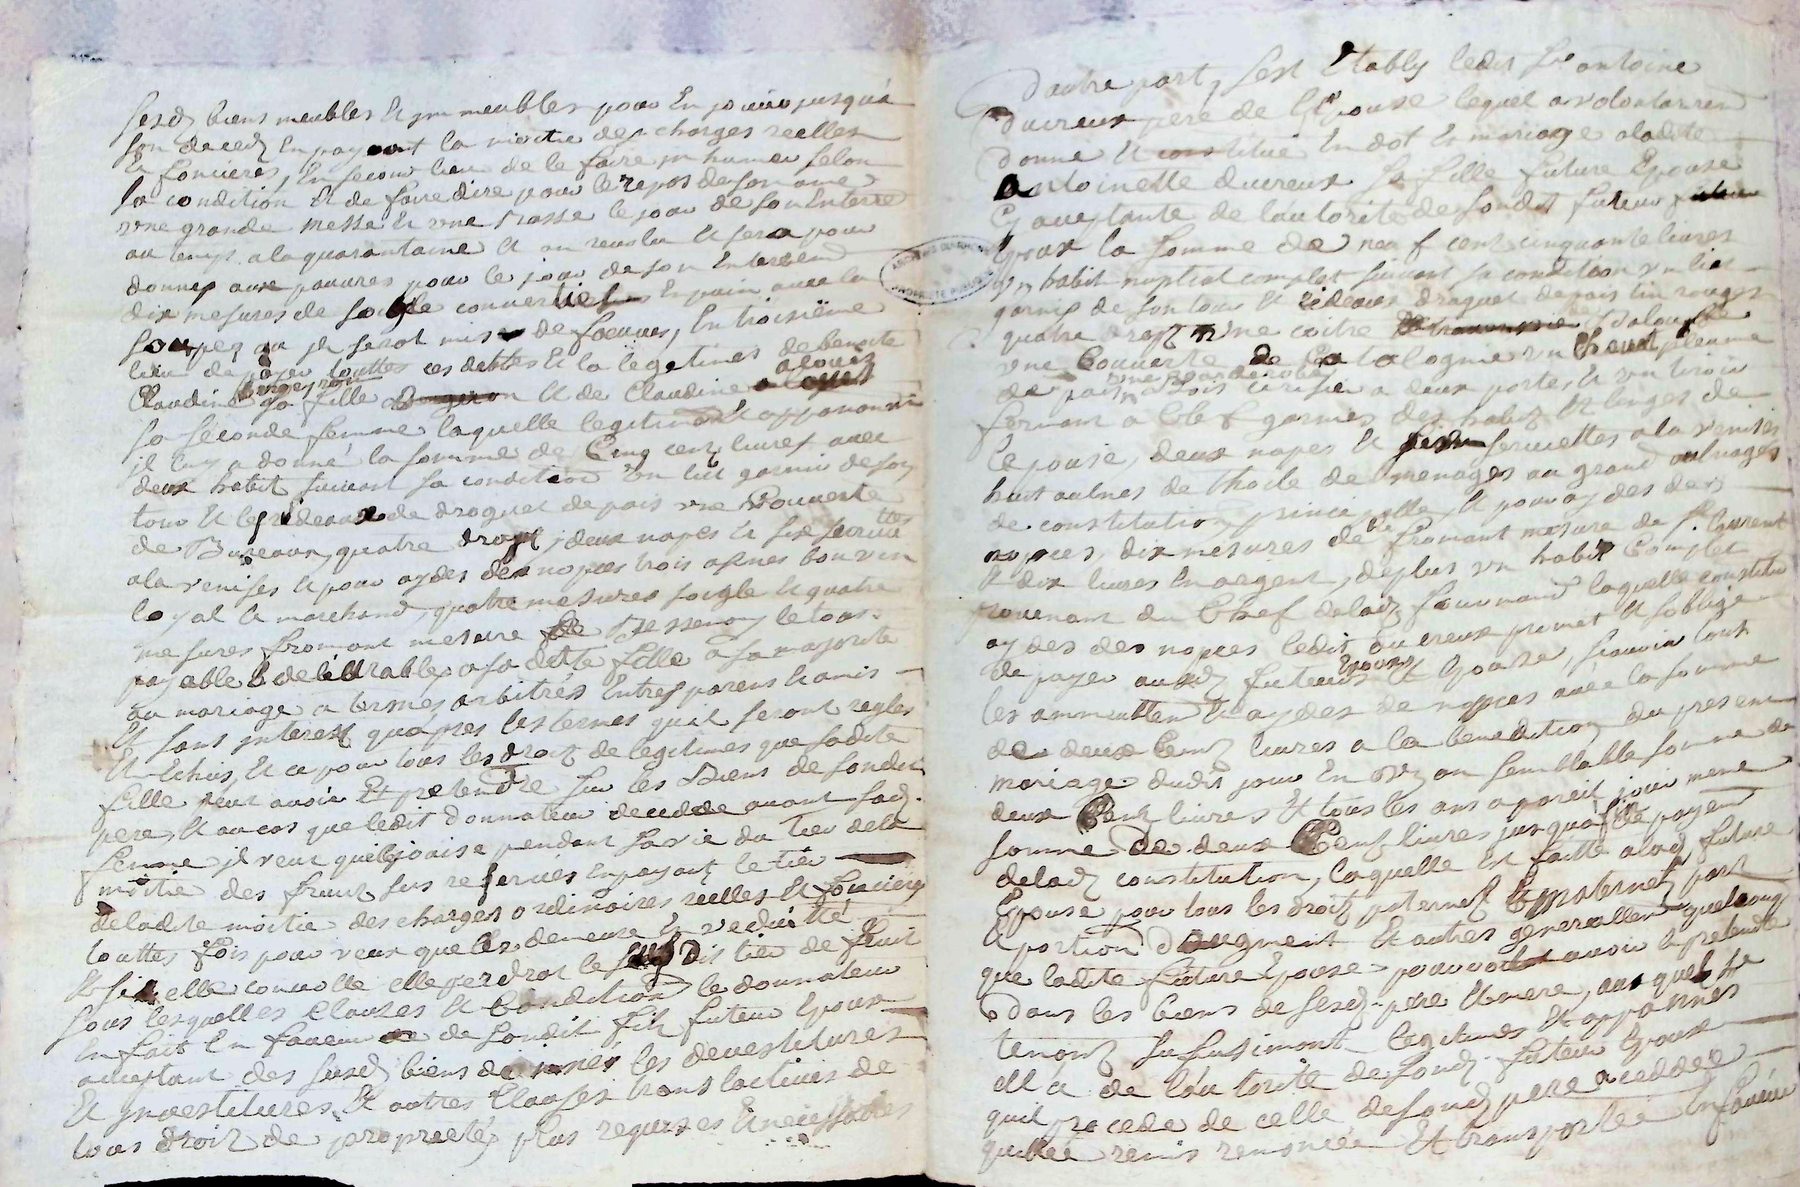 sesd biens meubles et jmmeubles pour en jouir jusqua
son deced en payant la moitie des charges reelles
et foncieres, en second lieu de le faire jnhumer selon
sa condition et de faire dire pour le repos de son ame
vne grande messe et vne basse le jour de son enterre
au temps a la quarantaine et au revolu et sera pour
donner aux pauures pour le jour de son enterrem
dix mesures de soigle conuerties en pain auec la
soupe ou jl serat mis de foeuues, en troisiéme
lieu de payer touttes ces dettes et la legetimes de benoite
Claudine sa fille et de Claudine
sa seconde femme laquelle legitime et apponannt
jl luy a donné la somme de Cinq cent liures auec
deux habit suiuant sa condition vn lict garnis de son
tour et les rideaux de droguet depais vne Couuerte
de Bureaux, quatre drapt, deux napes et six seruiettes
a la venises et pour aydes des nopces trois asnes bon vin
loyal et marchand, quatre mesures soigle et quatre
mesures fromant mesure de le tous
payable et deliurable a sa dite fille a sa majorite
ou mariage a termes arbitrés entres parens et amis
et sans jnterest quapres les termes quil seront regles
et echus, et ce pour tous les droit de legitimes que sadite
fille peut auoir et pretendre sur les biens de sondit
pere, et au cas que ledit donnateur decedde auant sad
femme jl veut quelle jouise pendant sa vie du tier de la
moitie des fruit sus reserués en payant le tier
de ladite moitie des charges ordinaires reelles et foncieres
touttes fois pour veux quelles demeure en veduitté
et si elle conuolle elle perdrat le susdit tier de fruit
sous lesquelles clauses et condition le donnateur
en fait en faueur de sondit fils futeur epoux
acceptant des susd biens donnés les deuestitures
et jnuestitures et autres clauses translactiues de
tous droit de proprieté plus requises et necessaires
d'autre part, sest etably ledit sr antoine
ducreux pere de lepouse lequel a volontairem
donne et constitué en dot et mariage a ladite
antoinette ducreux sa fille future epouse
cy aceptante de lautorite de sondit futeur
epoux la somme de neuf cent cinquante liures
vn habit nuptial complet suiuant sa condition vn lict
garnis de son tour et rideaux droguet depais tin rouges
quatre drapt vne coitre
vne Couuerte de Catalognie vn
de bois cerisier a deux portes et vn tiroir
fermant a clef garnies des habit et linges de
lepouse, deux napes et seruiettes a la venises
huit aulnes de thoile de menages au grand aulnages
de constitution principalle, et pour aydes des
nopces, dix mesures de fromant mesure de st laurent
et dix liures en argent, deplus vn habit complet
prouenant du Chef de lad laquelle constitu
aydes des nopces ledit ducreux promet et soblige
de payer aud futeurs epoux et epouse, scauoir tout
les et aydes de nopces auec la somme
de deux cent liures a la benediction du present
mariage dudit jour en vn an semblable somme de
deux Cent liures et tous les ans a pareil jour meme
somme de deux Cent liures jusqua fait de payem
de lad constitution, laquelle est faitte a lad future
epouse pour tous les droit paternel et maternel part
et portion daugment et autres generallem quelconq
que ladite future epouse pouuoit auoir et pretendre
dans les biens de sesd pere et mere, aux quels
tenant legitimes et appanes
ell a de lautorite de sond futeur epoux
quil procede de celle de sond pere acceddée
quittée remis renoncée et transportée en faueur